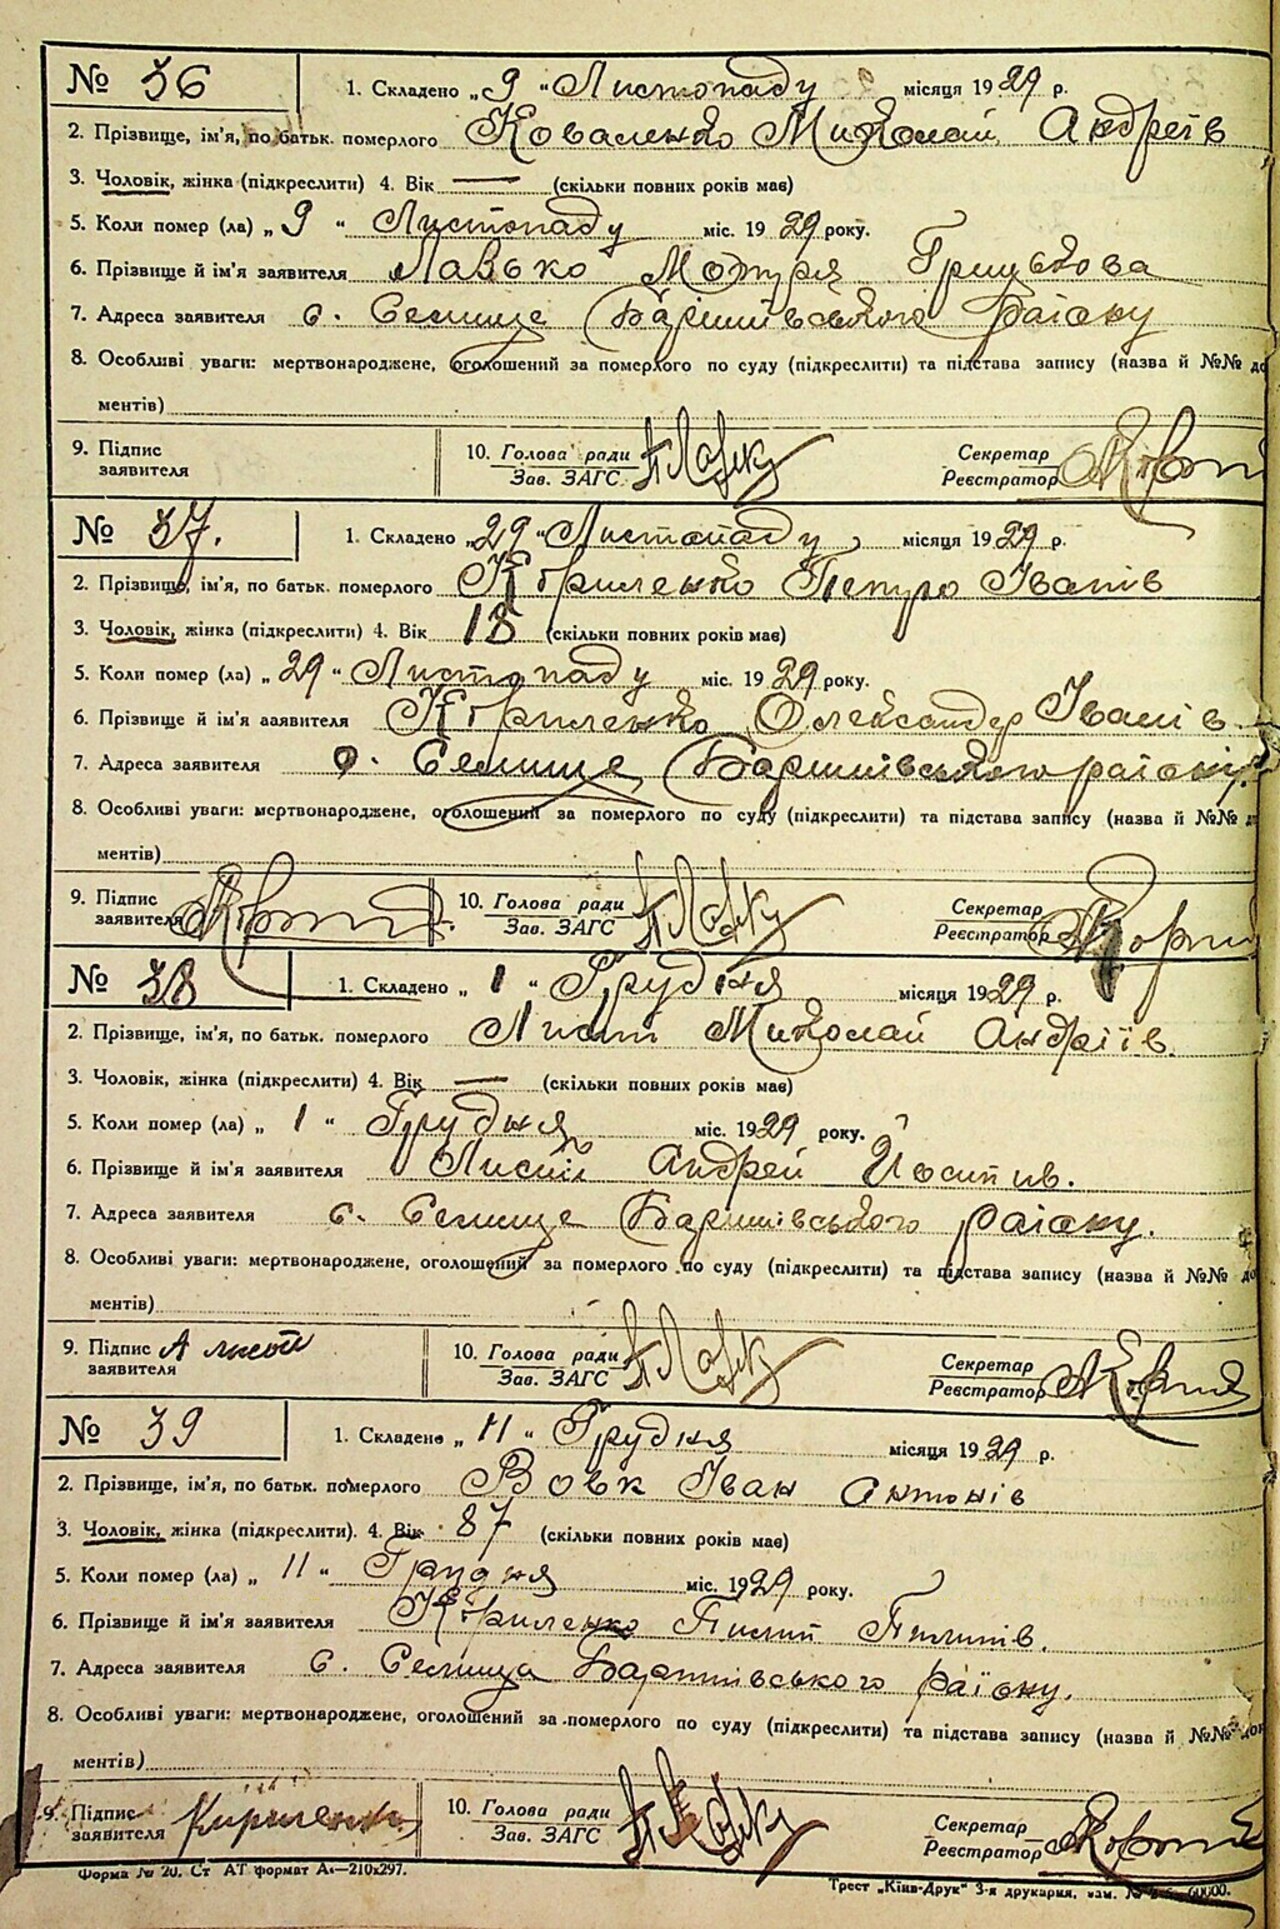 № 36 1. Складено „9“ Листопаду місяця 1929 р.
2. Прізвище, ім'я, по батьк. померлого Коваленко Миколай Андреїв
3. Чоловік, жінка (підкреслити) 4. Вік — (скільки повних років має)
5. Коли помер (ла) „9“ Листопаду міс. 1929 року.
6. Прізвище й ім'я заявителя Мотря Грицькова
7. Адреса заявителя с. Селище Баришівського району
8. Особливі уваги: мертвонароджене, оголошений за померлого по суду (підкреслити) та підстава запису (назва й №№ до
ментів)
9. Підпис заявителя 10. Голова ради Зав. ЗАГС Секретар Реєстратор
№ 37. 1. Складено „29“ Листопаду місяця 1929 р.
2. Прізвище, ім'я, по батьк. померлого Кириленко Петро Іванів
3. Чоловік, жінка (підкреслити) 4. Вік 18 (скільки повних років має)
5. Коли помер (ла) „29“ Листопаду міс. 1929 року.
6. Прізвище й ім'я заявителя Кириленко Олександер Іванів
7. Адреса заявителя с. Селище Баришівського району
8. Особливі уваги: мертвонароджене, оголошений за померлого по суду (підкреслити) та підстава запису (назва й №№
ментів)
9. Підпис заявителя 10. Голова ради Зав. ЗАГС Секретар Реєстратор
№ 38 1. Складено „1“ Грудня місяця 1929 р.
2. Прізвище, ім'я, по батьк. померлого Миколай Андріїв.
3. Чоловік, жінка (підкреслити) 4. Вік — (скільки повних років має)
5. Коли помер (ла) „1“ Грудня міс. 1929 року.
6. Прізвище й ім'я заявителя Андрей Йосипів.
7. Адреса заявителя с. Селище Баришівського району.
8. Особливі уваги: мертвонароджене, оголошений за померлого по суду (підкреслити) та підстава запису (назва й №№ до
ментів)
9. Підпис заявителя А 10. Голова ради Зав. ЗАГС Секретар Реєстратор
№ 39 1. Складено „11“ Грудня місяця 1929 р.
2. Прізвище, ім'я, по батьк. померлого Вовк Іван Антонів
3. Чоловік, жінка (підкреслити). 4. Вік 87 (скільки повних років має)
5. Коли помер (ла) „11“ Грудня міс. 1929 року.
6. Прізвище й ім'я заявителя Кириленко Пилип Пилипів.
7. Адреса заявителя с. Селища Баришівського району.
8. Особливі уваги: мертвонароджене, оголошений за померлого по суду (підкреслити) та підстава запису (назва й №№ док
ментів)
9. Підпис заявителя Кириленко 10. Голова ради Зав. ЗАГС Секретар Реєстратор
Форма № 20. Ст АТ формат А4—210x297. Трест „Київ-Друк“ 3-я друкарня. 60000.